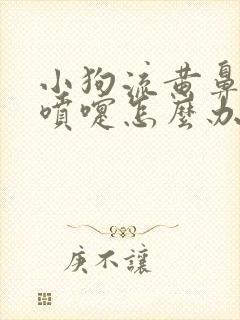 小狗流黄鼻
噴嚏怎麼办
庚不讓